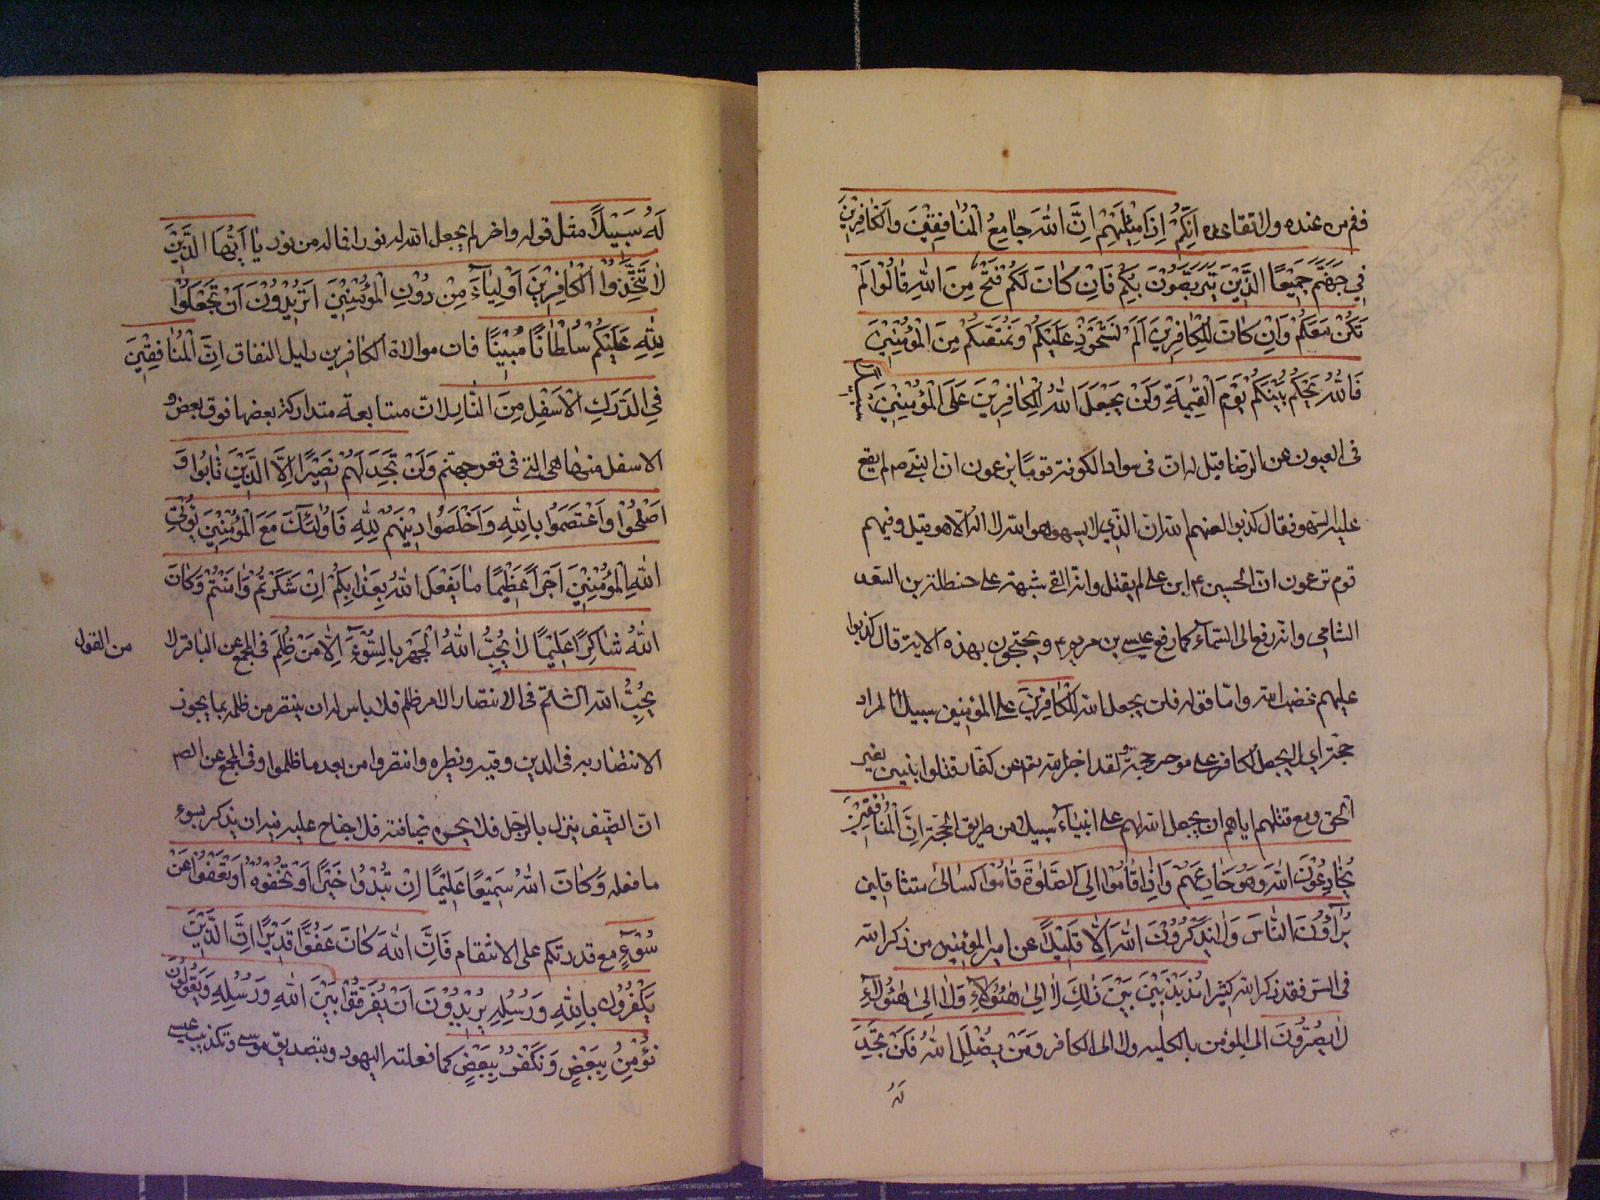 فقم من عنده ولا تقاعده اِنَّكُمْ اِذًا مِثْلُهُمْ اِنَّ اللّٰهَ جَامِعُ الْمُنَافِقِيْنَ وَالْكَافِرِيْنَ
فِي جَهَنَّمَ جَمِيْعًا الَّذِيْنَ يَتَرَبَّصُوْنَ بِكُمْ فَاِنْ كَانَ لَكُمْ فَتْحٌ مِنَ اللّٰهِ قَالُوْا اَلَمْ
نَكُنْ مَعَكُمْ وَاِنْ كَانَ لِلْكَافِرِيْنَ اَلَمْ نَسْتَحْوِذْ عَلَيْكُمْ وَنَمْنَعْكُمْ مِنَ الْمُؤْمِنِيْنَ
فَاللّٰهُ يَحْكُمُ بَيْنَكُمْ يَوْمَ الْقِيٰمَةِ وَلَنْ يَجْعَلَ اللّٰهُ لِلْكَافِرِيْنَ عَلَى الْمُؤْمِنِيْنَ
في العيون عن الرضا قيل له ان في سواد الكوفة قوما يزعمون ان النبي ص لم يقع
عليه السهو فقال كذبوا لعنهم الله ان الذي لا يسهو هو الله لا اله الا هو قيل وفيهم
قوم يزعمون ان الحسين ع ابن علي لم يقتل وانه القي شبهه على حنظلة بن اسعد
الشامي وانه رفع الى السماء كما رفع عيسى بن مريم ع ويحتجون بهذه الاية قال كذبوا
عليهم غضب الله واما قوله فلن يجعل الله لِلْكَافِرِيْنَ على المؤمنين سبيلا المراد
حجة اي لن يجعل لكافر على مؤمن حجة ولقد اخبر الله تع عن كفار قتلوا نبيين بغير
الحق ومع قتلهم اياهم لن يجعل الله لهم على انبيائه سبيلا من طريق الحجة اِنَّ الْمُنَافِقِيْنَ
يُخَادِعُوْنَ اللّٰهَ وَهُوَ خَادِعُهُمْ وَاِذَا قَامُوْا اِلَى الصَّلٰوةِ قَامُوْا كُسَالٰى متثاقلين
يُرَاؤُنَ النَّاسَ وَلَا يَذْكُرُوْنَ اللّٰهَ اِلَّا قَلِيْلًا عن امير المؤمنين من ذكر الله
في السر فقد ذكر الله كثيرا مُذَبْذَبِيْنَ بَيْنَ ذٰلِكَ لَا اِلٰى هٰؤُلَاءِ وَلَا اِلٰى هٰؤُلَاءِ
لا يصيرون الى المؤمن بالكلية ولا الى الكافر وَمَنْ يُضْلِلِ اللّٰهُ فَلَنْ تَجِدَ
لَهُ
لَهُ سَبِيْلًا مثل قوله واخر لم يجعل الله له نورا فما له من نور يَا اَيُّهَا الَّذِيْنَ
لَا تَتَّخِذُوْا الْكَافِرِيْنَ اَوْلِيَاءَ مِنْ دُوْنِ الْمُؤْمِنِيْنَ اَتُرِيْدُوْنَ اَنْ تَجْعَلُوْا
لِلّٰهِ عَلَيْكُمْ سُلْطَانًا مُبِيْنًا فان موالاة الكافرين دليل النفاق اِنَّ الْمُنَافِقِيْنَ
فِي الدَّرَكِ الْاَسْفَلِ مِنَ النَّارِ لان متتابعة متداركة بعضها فوق بعض و
الاسفل منها هي التي في قعر جهنم وَلَنْ تَجِدَ لَهُمْ نَصِيْرًا اِلَّا الَّذِيْنَ تَابُوا وَ
اَصْلَحُوْا وَاعْتَصَمُوْا بِاللّٰهِ وَاَخْلَصُوْا دِيْنَهُمْ لِلّٰهِ فَاُولٰئِكَ مَعَ الْمُؤْمِنِيْنَ يُؤْتِ
اللّٰهُ الْمُؤْمِنِيْنَ اَجْرًا عَظِيْمًا مَا يَفْعَلُ اللّٰهُ بِعَذَابِكُمْ اِنْ شَكَرْتُمْ وَاٰمَنْتُمْ وَكَانَ
اللّٰهُ شَاكِرًا عَلِيْمًا لَا يُحِبُّ اللّٰهُ الْجَهْرَ بِالسُّوْءِ اِلَّا مَنْ ظُلِمَ في المجمع عن الباقر لا
من القول
يحب الله الشتم في الانتصار الا من ظلم فلا باس له ان ينتصر من ظلمه بما يجوز
الانتصار به في الدين وفيه ونظيره وانتصروا من بعد ما ظلموا وفي المجمع عن الص
ان الضيف ينزل بالرجل فلا يحسن ضيافته فلا جناح عليه في ان يذكر بسوء
ما فعله وَكَانَ اللّٰهُ سَمِيْعًا عَلِيْمًا اِنْ تُبْدُوْا خَيْرًا اَوْ تُخْفُوْهُ اَوْ تَعْفُوْا عَنْ
سُوْءٍ مع قدرتكم على الانتقام فَاِنَّ اللّٰهَ كَانَ عَفُوًّا قَدِيْرًا اِنَّ الَّذِيْنَ
يَكْفُرُوْنَ بِاللّٰهِ وَرُسُلِهِ يُرِيْدُوْنَ اَنْ يُفَرِّقُوْا بَيْنَ اللّٰهِ وَرُسُلِهِ وَيَقُوْلُوْنَ
نُؤْمِنُ بِبَعْضٍ وَنَكْفُرُ بِبَعْضٍ كما فعلته اليهود وبتصديق موسى وتكذيب عيسى